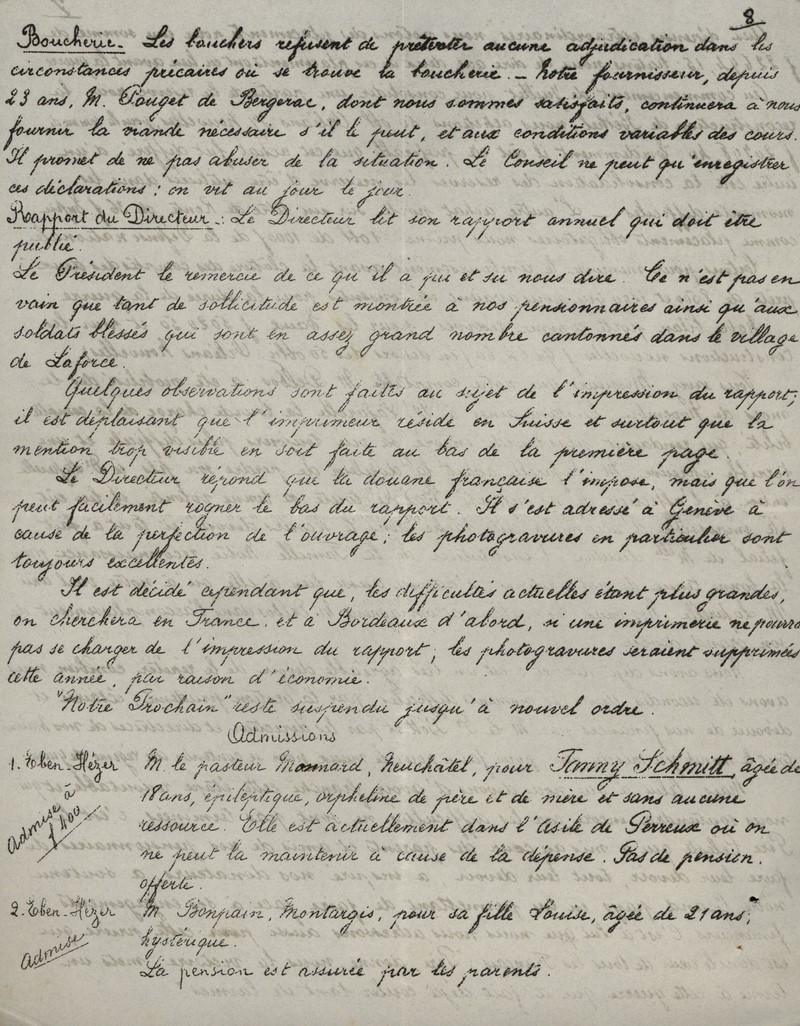 8
Boucherie. Les bouchers refusent de présenter aucune adjudication dans les
circonstances précaires où se trouve la boucherie. - Notre fournisseur, depuis
23 ans, M. Pouget de Bergerac, dont nous sommes satisfaits, continuera à nous
fournir la viande nécessaire s'il le peut, et aux conditions variables des cours.
Il promet de ne pas abuser de la situation. Le Conseil ne peut qu'enregistrer
ces déclarations : on vit au jour le jour.
Rapport du Directeur. : Le Directeur lit son rapport annuel qui doit être
publié.
Le Président le remercie de ce qu'il a pu et su nous dire. Ce n'est pas en
vain que tant de sollicitude est montrée à nos pensionnaires ainsi qu'aux
soldats blessés qui sont en assez grand nombre cantonnés dans le village
de Laforce.
Quelques observations sont faites au sujet de l'impression du rapport;
il est déplaisant que l'imprimeur réside en Suisse et surtout que la
mention trop visible en soit faite au bas de la première page.
Le Directeur répond que la douane française l'impose, mais que l'on
peut facilement rogner le bas du rapport. Il s'est adressé à Genève à
cause de la perfection de l'ouvrage; les photogravures en particulier sont
toujours excellentes.
Il est décidé cependant que, les difficultés actuelles étant plus grandes,
on cherchera en France, et à Bordeaux d'abord, si une imprimerie ne pourra
pas se charger de l'impression du rapport; les photogravures seraient supprimées
cette année, par raison d'économie.
"Notre Prochain" reste suspendu jusqu'à nouvel ordre.
Admissions
1. Eben-Hézer M. le pasteur Monnard, Neuchâtel, pour Fanny Schmitt, âgée de
Admise à 18 ans, épileptique, orpheline de père et de mère et sans aucune
f 400 ressource. Elle est actuellement dans l'Asile de Perreux où on
ne peut la maintenir à cause de la dépense. Pas de pension.
offerte.
2. Eben-Hézer M. Bonpain, Montargis, pour sa fille Louise, âgée de 21 ans,
Admise hystérique.
La pension est assurée par les parents.